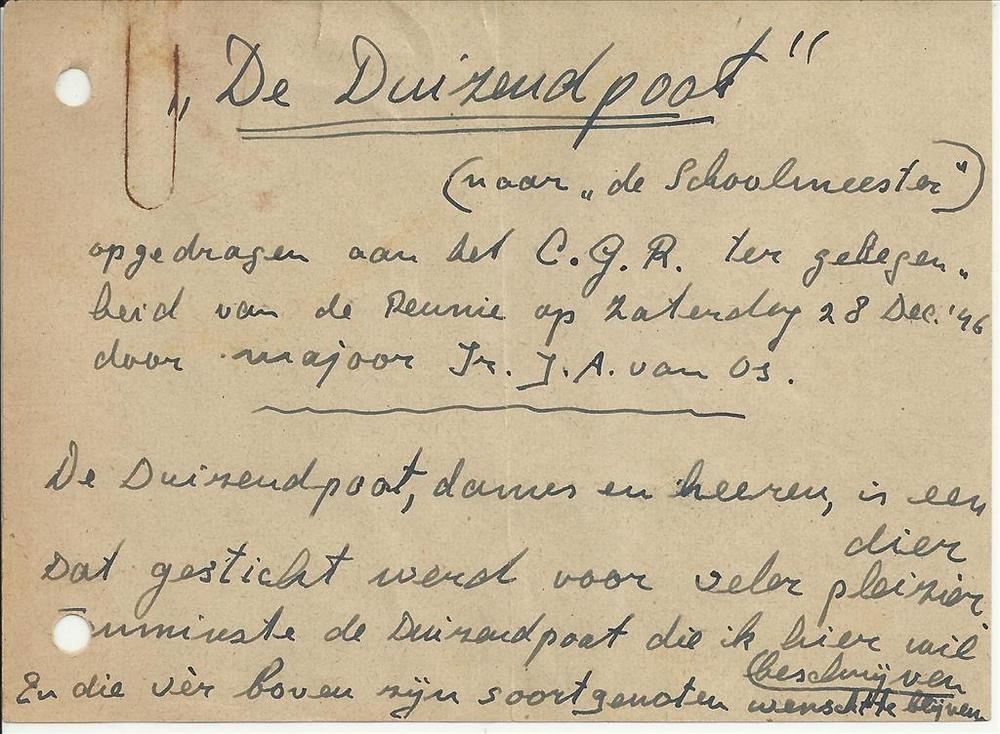 „De Duizendpoot"
(naar „de Schoolmeester")
opgedragen aan het C.G.R. ter gelegen„
heid van de Reunie op Zaterdag 28 Dec. '46
door majoor Ir. J.A. van Os.
De Duizendpoot, dames en heeren, is een
dier
Dat gesticht werd voor veler pleizier,
Tenminste de Duizendpoot die ik hier wil
beschrijven
En die vèr boven zijn soortgenoten wenscht te blijven